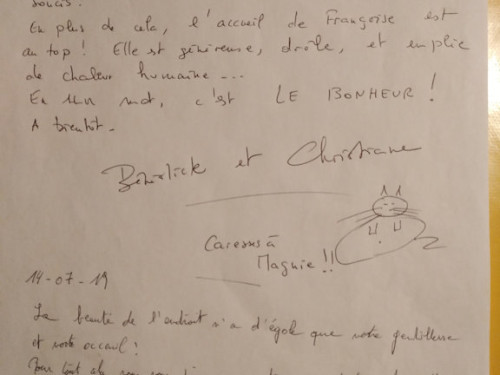 soucis.
En plus de cela, l'accueil de Françoise est
au top ! Elle est généreuse, drôle, et emplie
de chaleur humaine...
En un mot, c'est LE BONHEUR !
A bientôt.
et Christiane
Caresses à
Magnie !!
14-07-19
La beauté de l'endroit n'a d'égale que votre gentillesse
et votre accueil !